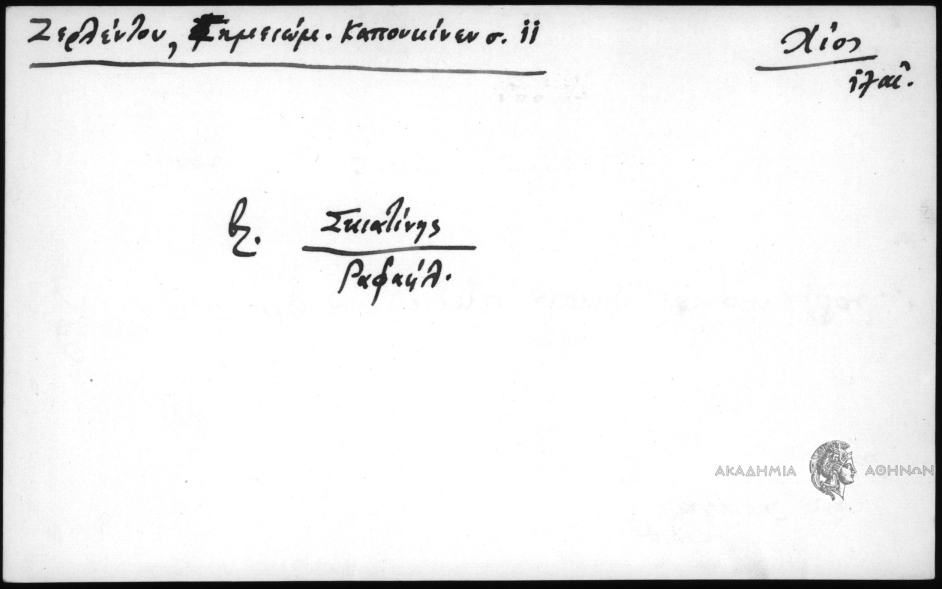 Ζερλέντου, Σημειώμ. Καπουκίνων σ. 11
Χίος
ἰταλ.
βλ. Σκιατίνης
Ραφαήλ.
ΑΚΑΔΗΜΙΑ ΑΘΗΝΩΝ